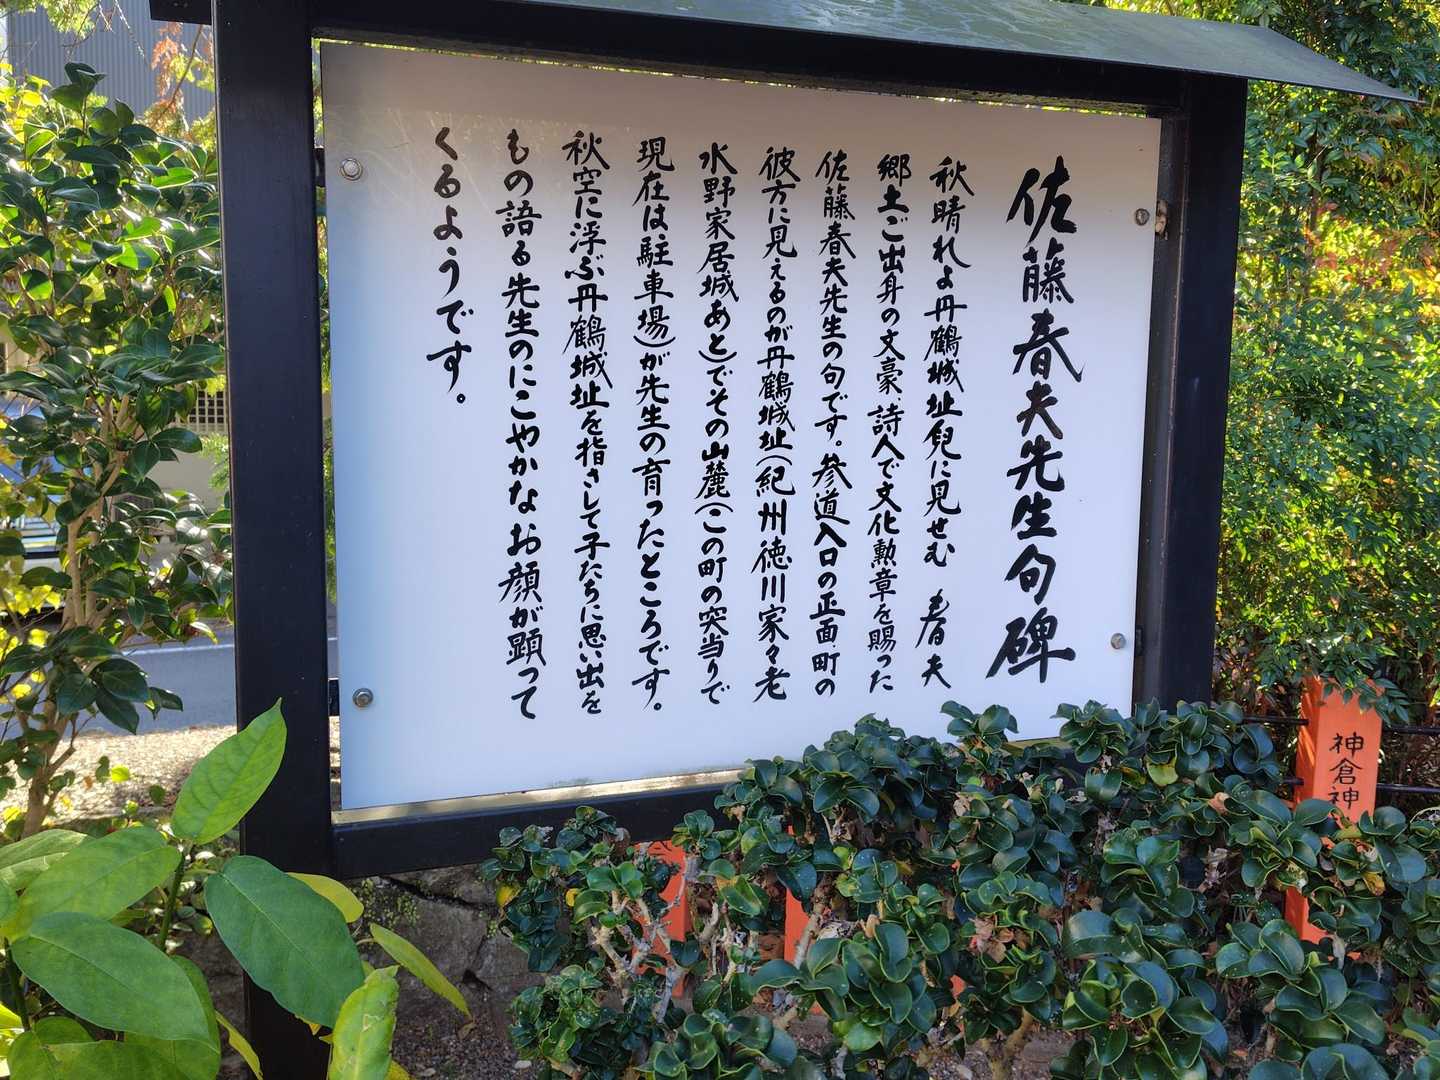 佐藤春夫先生句碑
秋晴れよ丹鶴城址児に見せむ 春夫
郷土ご出身の文豪、詩人で文化勲章を賜った
佐藤春夫先生の句です。参道入口の正面、町の
彼方に見えるのが丹鶴城址(紀州徳川家々老
水野家居城あと)でその山麓(この町の突当りで
現在は駐車場)が先生の育ったところです。
秋空に浮ぶ丹鶴城址を指さして子たちに思い出を
もの語る先生のにこやかなお顔が顕って
くるようです。
神倉神